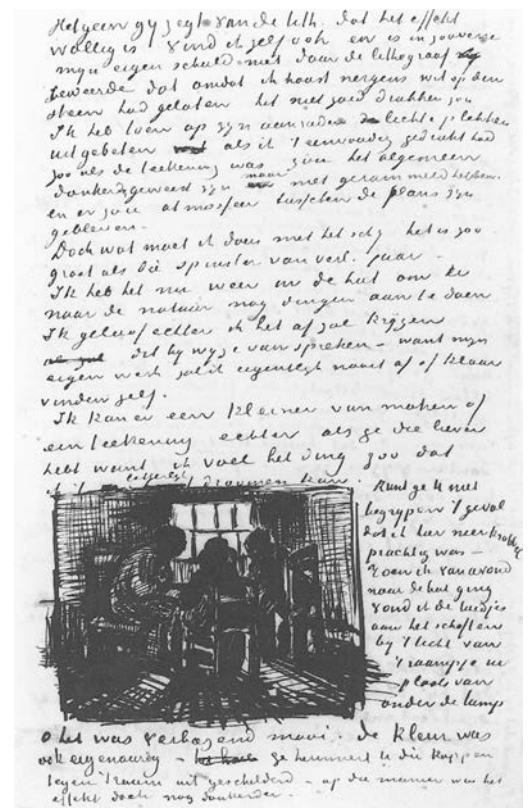 Hetgeen gij zegt van de lith. dat het effekt
wollig is vind ik zelf ook en is in zooverre
mijn eigen schuld niet daar de lithograaf
beweerde dat omdat ik haast nergens wit op den
steen had gelaten het niet goed drukken zou
Ik heb toen op zijn aanraden lichte plekken
uit gebeten als ik 't eenvoudig gedrukt had
zoo als de teekening was zou het algemeen
donkerder geweest zijn maar niet gerammeld hebben.
en er zou atmosfeer tusschen de plans zijn
gebleven. –
Doch wat moet ik doen met het schij het is zoo
groot als die spinster van verl. jaar –
Ik heb het nu weer in de hut om er
naar de natuur nog dingen aan te doen
Ik geloof echter ik het af zal krijgen
dit bij wijze van spreken – want mijn
eigen werk zal ik eigentlijk nooit af of klaar
vinden zelf.
Ik kan er een kleiner van maken of
een teekening echter als ge die liever
hebt want ik voel het ding zoo dat
ik 't letterlijk droomen kan.
Kunt ge u niet
begrijpen 't geval
dat ik hier neerkrabbel
prachtig was –
Toen ik van avond
naar de hut ging
vond ik de luidjes
aan het schoften
bij 't licht van
't raampje in
plaats van
onder de lamp
o het was verbazend mooi. de kleur was
ook eigenaardig – ge herinnert u die koppen
tegen 't raam uit geschilderd – op die manier was het
effekt doch nog donkerder.